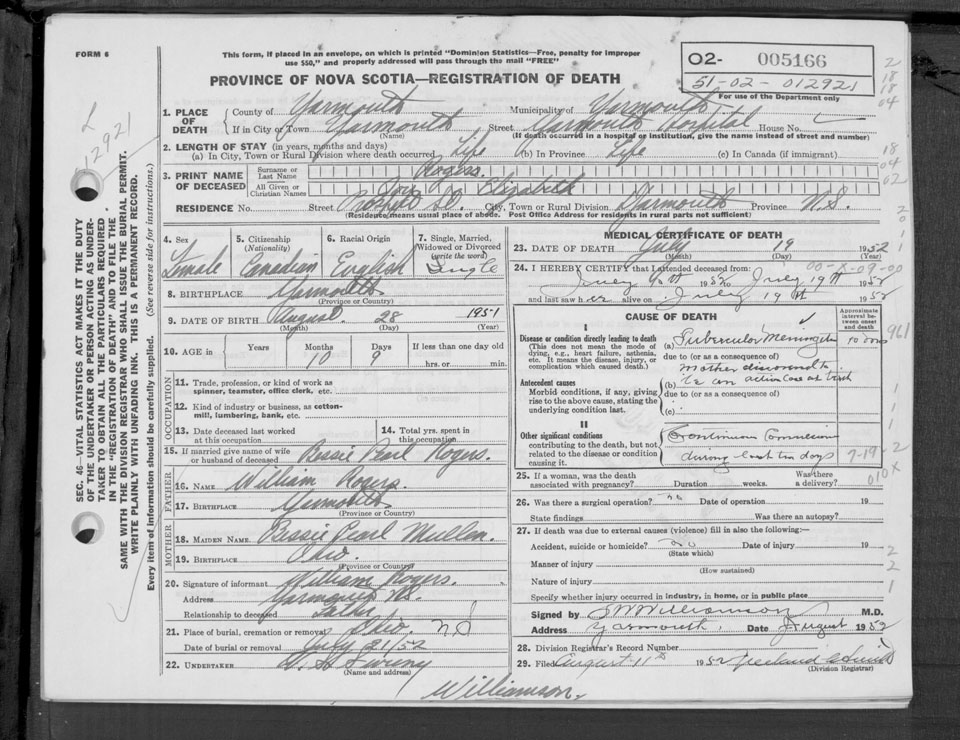 FORM 6
This form, if placed in an envelope, on which is printed "Dominion Statistics—Free, penalty for improper
use $50," and properly addressed will pass through the mail "FREE"
O2- 005166
51-02-012921
For use of the Department only
PROVINCE OF NOVA SCOTIA—REGISTRATION OF DEATH
12921
SEC. 46—VITAL STATISTICS ACT MAKES IT THE DUTY
OF THE UNDERTAKER OR PERSON ACTING AS UNDER-
TAKER TO OBTAIN ALL THE PARTICULARS REQUIRED
IN THE "REGISTRATION OF DEATH" AND TO FILE THE
SAME WITH THE DIVISION REGISTRAR WHO SHALL ISSUE THE BURIAL PERMIT.
WRITE PLAINLY WITH UNFADING INK. THIS IS A PERMANENT RECORD.
Every item of information should be carefully supplied. (See reverse side for instructions.)
1. PLACE OF DEATH County of Yarmouth Municipality of Yarmouth
If in City or Town Yarmouth Street Yarmouth Hospital House No.
(Name) (If death occurred in a hospital or institution, give the name instead of street and number)
2. LENGTH OF STAY (in years, months and days)
(a) In City, Town or Rural Division where death occurred Life (b) In Province Life (c) In Canada (if immigrant)
3. PRINT NAME OF DECEASED Surname or Last Name Rogers
All Given or Christian Names Joy Elizabeth
RESIDENCE No. Street City, Town or Rural Division Yarmouth Province N.S.
(Residence means usual place of abode. Post Office Address for residents in rural parts not sufficient)
4. Sex Female
5. Citizenship (Nationality) Canadian
6. Racial Origin English
7. Single, Married, Widowed or Divorced (write the word) Single
8. BIRTHPLACE Yarmouth
(Province or Country)
9. DATE OF BIRTH August 28 1951
(Month) (Day) (Year)
10. AGE in Years Months Days If less than one day old
10 9 hrs. or min.
OCCUPATION
11. Trade, profession, or kind of work as
spinner, teamster, office clerk, etc.
12. Kind of industry or business, as cotton-
mill, lumbering, bank, etc.
13. Date deceased last worked
at this occupation
14. Total yrs. spent in
this occupation
15. If married give name of wife
or husband of deceased Bessie Pearl Rogers.
FATHER
16. Name William Rogers.
17. Birthplace Yarmouth
(Province or Country)
MOTHER
18. Maiden Name Bessie Pearl Mullen
19. Birthplace Ohio.
(Province or Country)
20. Signature of informant William Rogers.
Address Yarmouth N.S.
Relationship to deceased Father
21. Place of burial, cremation or removal Ohio. N S
Date of burial or removal July 21/52
22. Undertaker Sweeny
(Name and address)
MEDICAL CERTIFICATE OF DEATH
23. DATE OF DEATH July 19 1952
(Month) (Day) (Year)
24. I HEREBY CERTIFY that I attended deceased from:
July 9th 1952 to July 19th 1952
and last saw her alive on July 19th 1952
CAUSE OF DEATH
Approximate interval between onset and death
I
Disease or condition directly leading to death
(This does not mean the mode of
dying, e.g., heart failure, asthenia,
etc. It means the disease, injury, or
complication which caused death.)
(a) Tubercular Meningitis 10 days
due to (or as a consequence of)
Antecedent causes
Morbid conditions, if any, giving
rise to the above cause, stating the
underlying condition last.
(b) Mother discovered to
be an active case at birth
due to (or as a consequence of)
(c)
II
Other significant conditions
contributing to the death, but not
related to the disease or condition
causing it.
Continuous Convulsions
during last ten days
25. If a woman, was the death
associated with pregnancy? Duration weeks. Was there a delivery?
26. Was there a surgical operation? no Date of operation 19
State findings Was there an autopsy?
27. If death was due to external causes (violence) fill in also the following:—
Accident, suicide or homicide? no Date of injury 19
(State which)
Manner of injury
(How sustained)
Nature of injury
Specify whether injury occurred in industry, in home, or in public place
Signed by Williamson M.D.
Address Yarmouth. Date August 1952
28. Division Registrar's Record Number
29. Filed August 11th 1952
(Division Registrar)
Williamson.